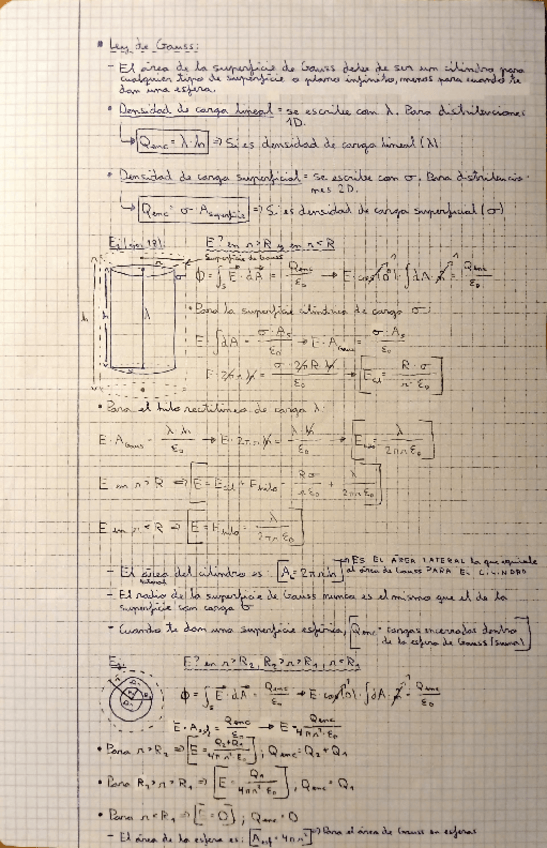 • Ley de Gauss:
– El área de la superficie de Gauss debe de ser un cilindro para
cualquier tipo de superficie o plano infinito, menos para cuando te
dan una esfera.
• Densidad de carga lineal = se escribe con λ. Para distribuciones
1D.
↳ Qenc = λ·h ⇒ Si es densidad de carga lineal (λ)
• Densidad de carga superficial = se escribe con σ. Para distribucio-
nes 2D.
↳ Qenc = σ·Asuperficie ⇒ Si es densidad de carga superficial (σ)
E? en r>R y en r<R
Superficie de Gauss
ϕ = ∫s E·dA = Qenc/ε0 → E·cos(0)·∫dA = Qenc/ε0
σ
h
λ
• Para la superficie cilíndrica de carga σ:
E·∫dA = σ·As/ε0 → E·AGauss = σ·As/ε0
E·2πrh = σ·2πRh/ε0 → [Ecil = R·σ/r·ε0]
• Para el hilo rectilíneo de carga λ:
E·AGauss = λ·h/ε0 → E·2πrh = λ·h/ε0 → [Ehilo = λ/2πrε0]
E en r>R ⇒ [E = Ecil + Ehilo = Rσ/rε0 + λ/2πrε0]
E en r<R ⇒ [E = Ehilo = λ/2πrε0]
– El área lateral del cilindro es: [AL = 2πrh] → ES EL ÁREA LATERAL la que equivale
al área de Gauss PARA EL CILINDRO
– El radio de la superficie de Gauss nunca es el mismo que el de la
superficie con carga σ
– Cuando te dan una superficie esférica, [Qenc = cargas encerradas dentro
de la esfera de Gauss (suma)]
Ej:
E? en r>R2, R2>r>R1, r<R1
ϕ = ∫s E·dA = Qenc/ε0 → E·cos(0)·∫dA = Qenc/ε0
E·Aesf = Qenc/ε0 → E = Qenc/4πr²·ε0
• Para r>R2 ⇒ [E = Q2+Q1/4πr²·ε0]; Qenc = Q2+Q1
• Para R2>r>R1 ⇒ [E = Q1/4πr²·ε0]; Qenc = Q1
• Para r<R1 ⇒ [E=0]; Qenc = 0
– El área de la esfera es: [Aesf = 4πr²] ⇒ Para el área de Gauss en esferas